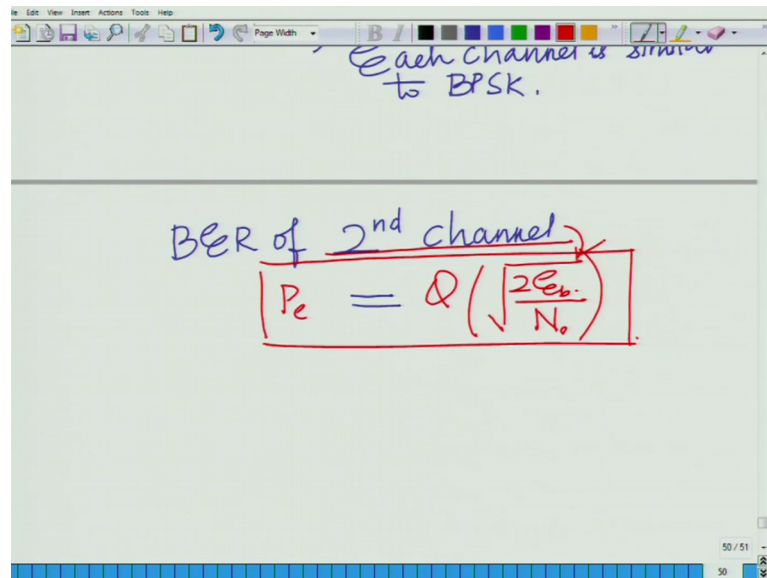 Edit View Insert Actions Tools Help
Page Width
B I
Each channel is similar
to BPSK.
BER of 2nd channel
Pe = Q(√(2Eb/N₀))
50 / 51
50